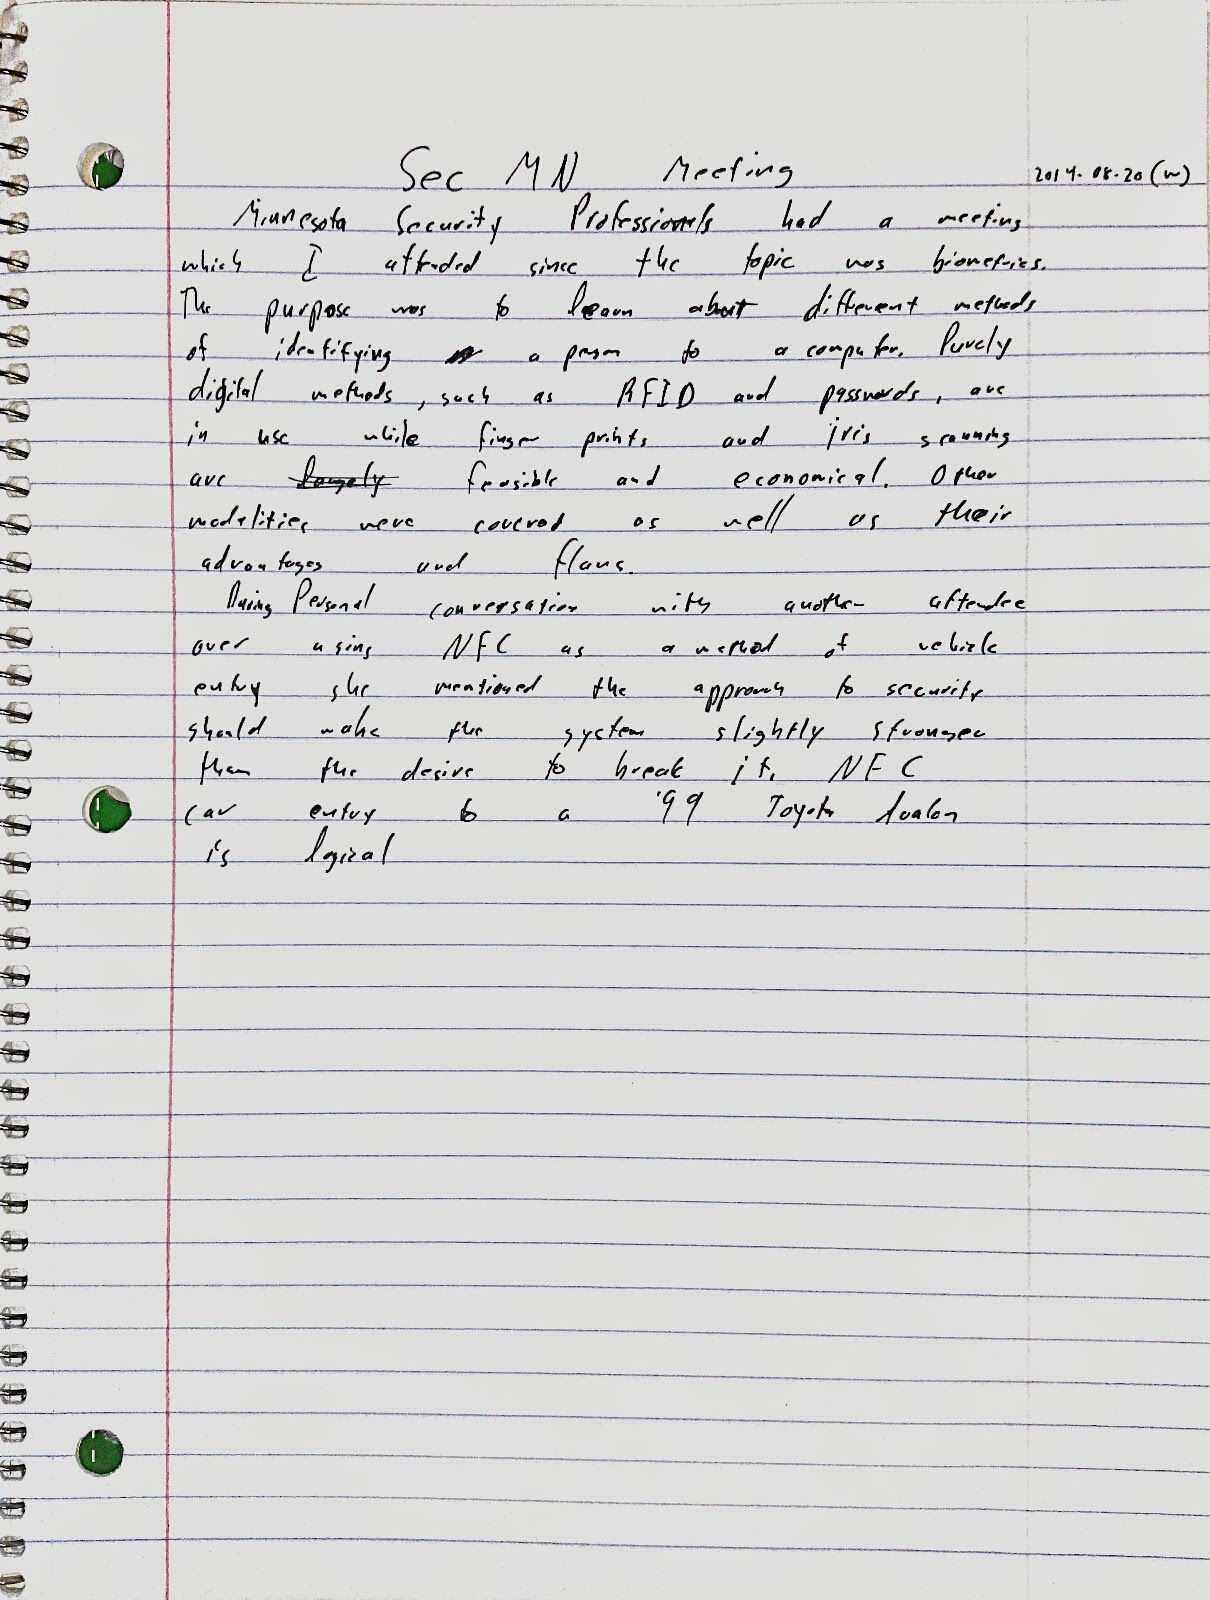 Sec MN Meeting 2014-08-20 (W)
Minnesota Security Professionals had a meeting
which I attended since the topic was biometrics.
The purpose was to learn about different methods
of identifying a person to a computer. Purely
digital methods, such as RFID and passwords, are
in use while finger prints and iris scanning
are largely feasible and economical. Other
modalities were covered as well as their
advantages and flaws.
During Personal conversation with another attendee
over using NFC as a method of vehicle
entry she mentioned the approach to security
should make the system slightly stronger
than the desire to break it. NFC
car entry to a '99 Toyota Avalon
is logical